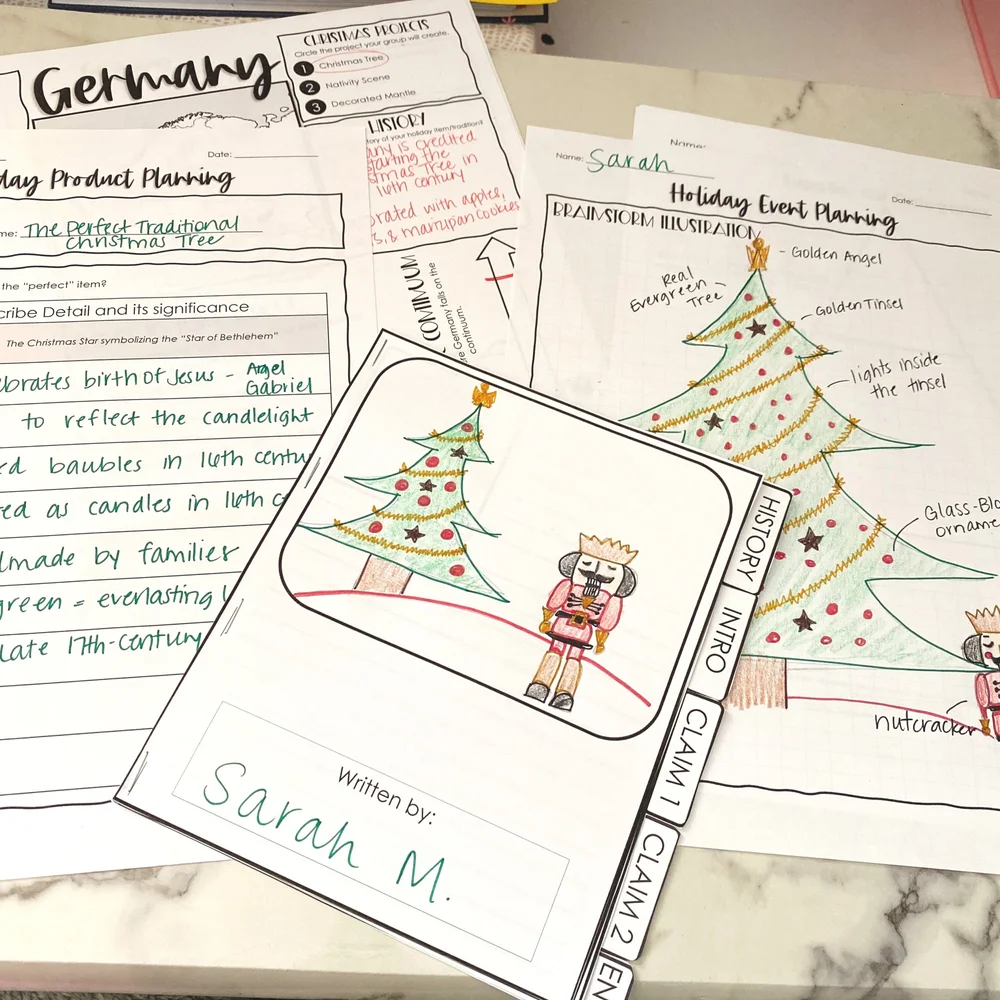 Germany
CHRISTMAS PROJECTS
Circle the project your group will create.
1 Christmas Tree
2 Nativity Scene
3 Decorated Mantle
HISTORY
of your holiday item/tradition?
is credited
the
Tree in
16th century
apples,
& marzapan cookies
CONTINUUM
Germany falls on the
continuum.
Date:
Product Planning
The Perfect Traditional
Christmas Tree
the "perfect" item?
Detail and its significance
The Christmas Star symbolizing the "Star of Bethlehem"
birth of Jesus - Angel
Gabriel
to reflect the candlelight
baubles in 16th
as candles in 16th
made by families
green = everlasting
late 17th-century
Name:
Name: Sarah
Date:
Holiday Event Planning
BRAINSTORM ILLUSTRATION
- Golden Angel
Real
Evergreen -
Tree
- Golden Tinsel
- lights inside
the tinsel
Glass-
nutcracker
Written by:
Sarah M.
HISTORY
INTRO
CLAIM 1
CLAIM 2
EN